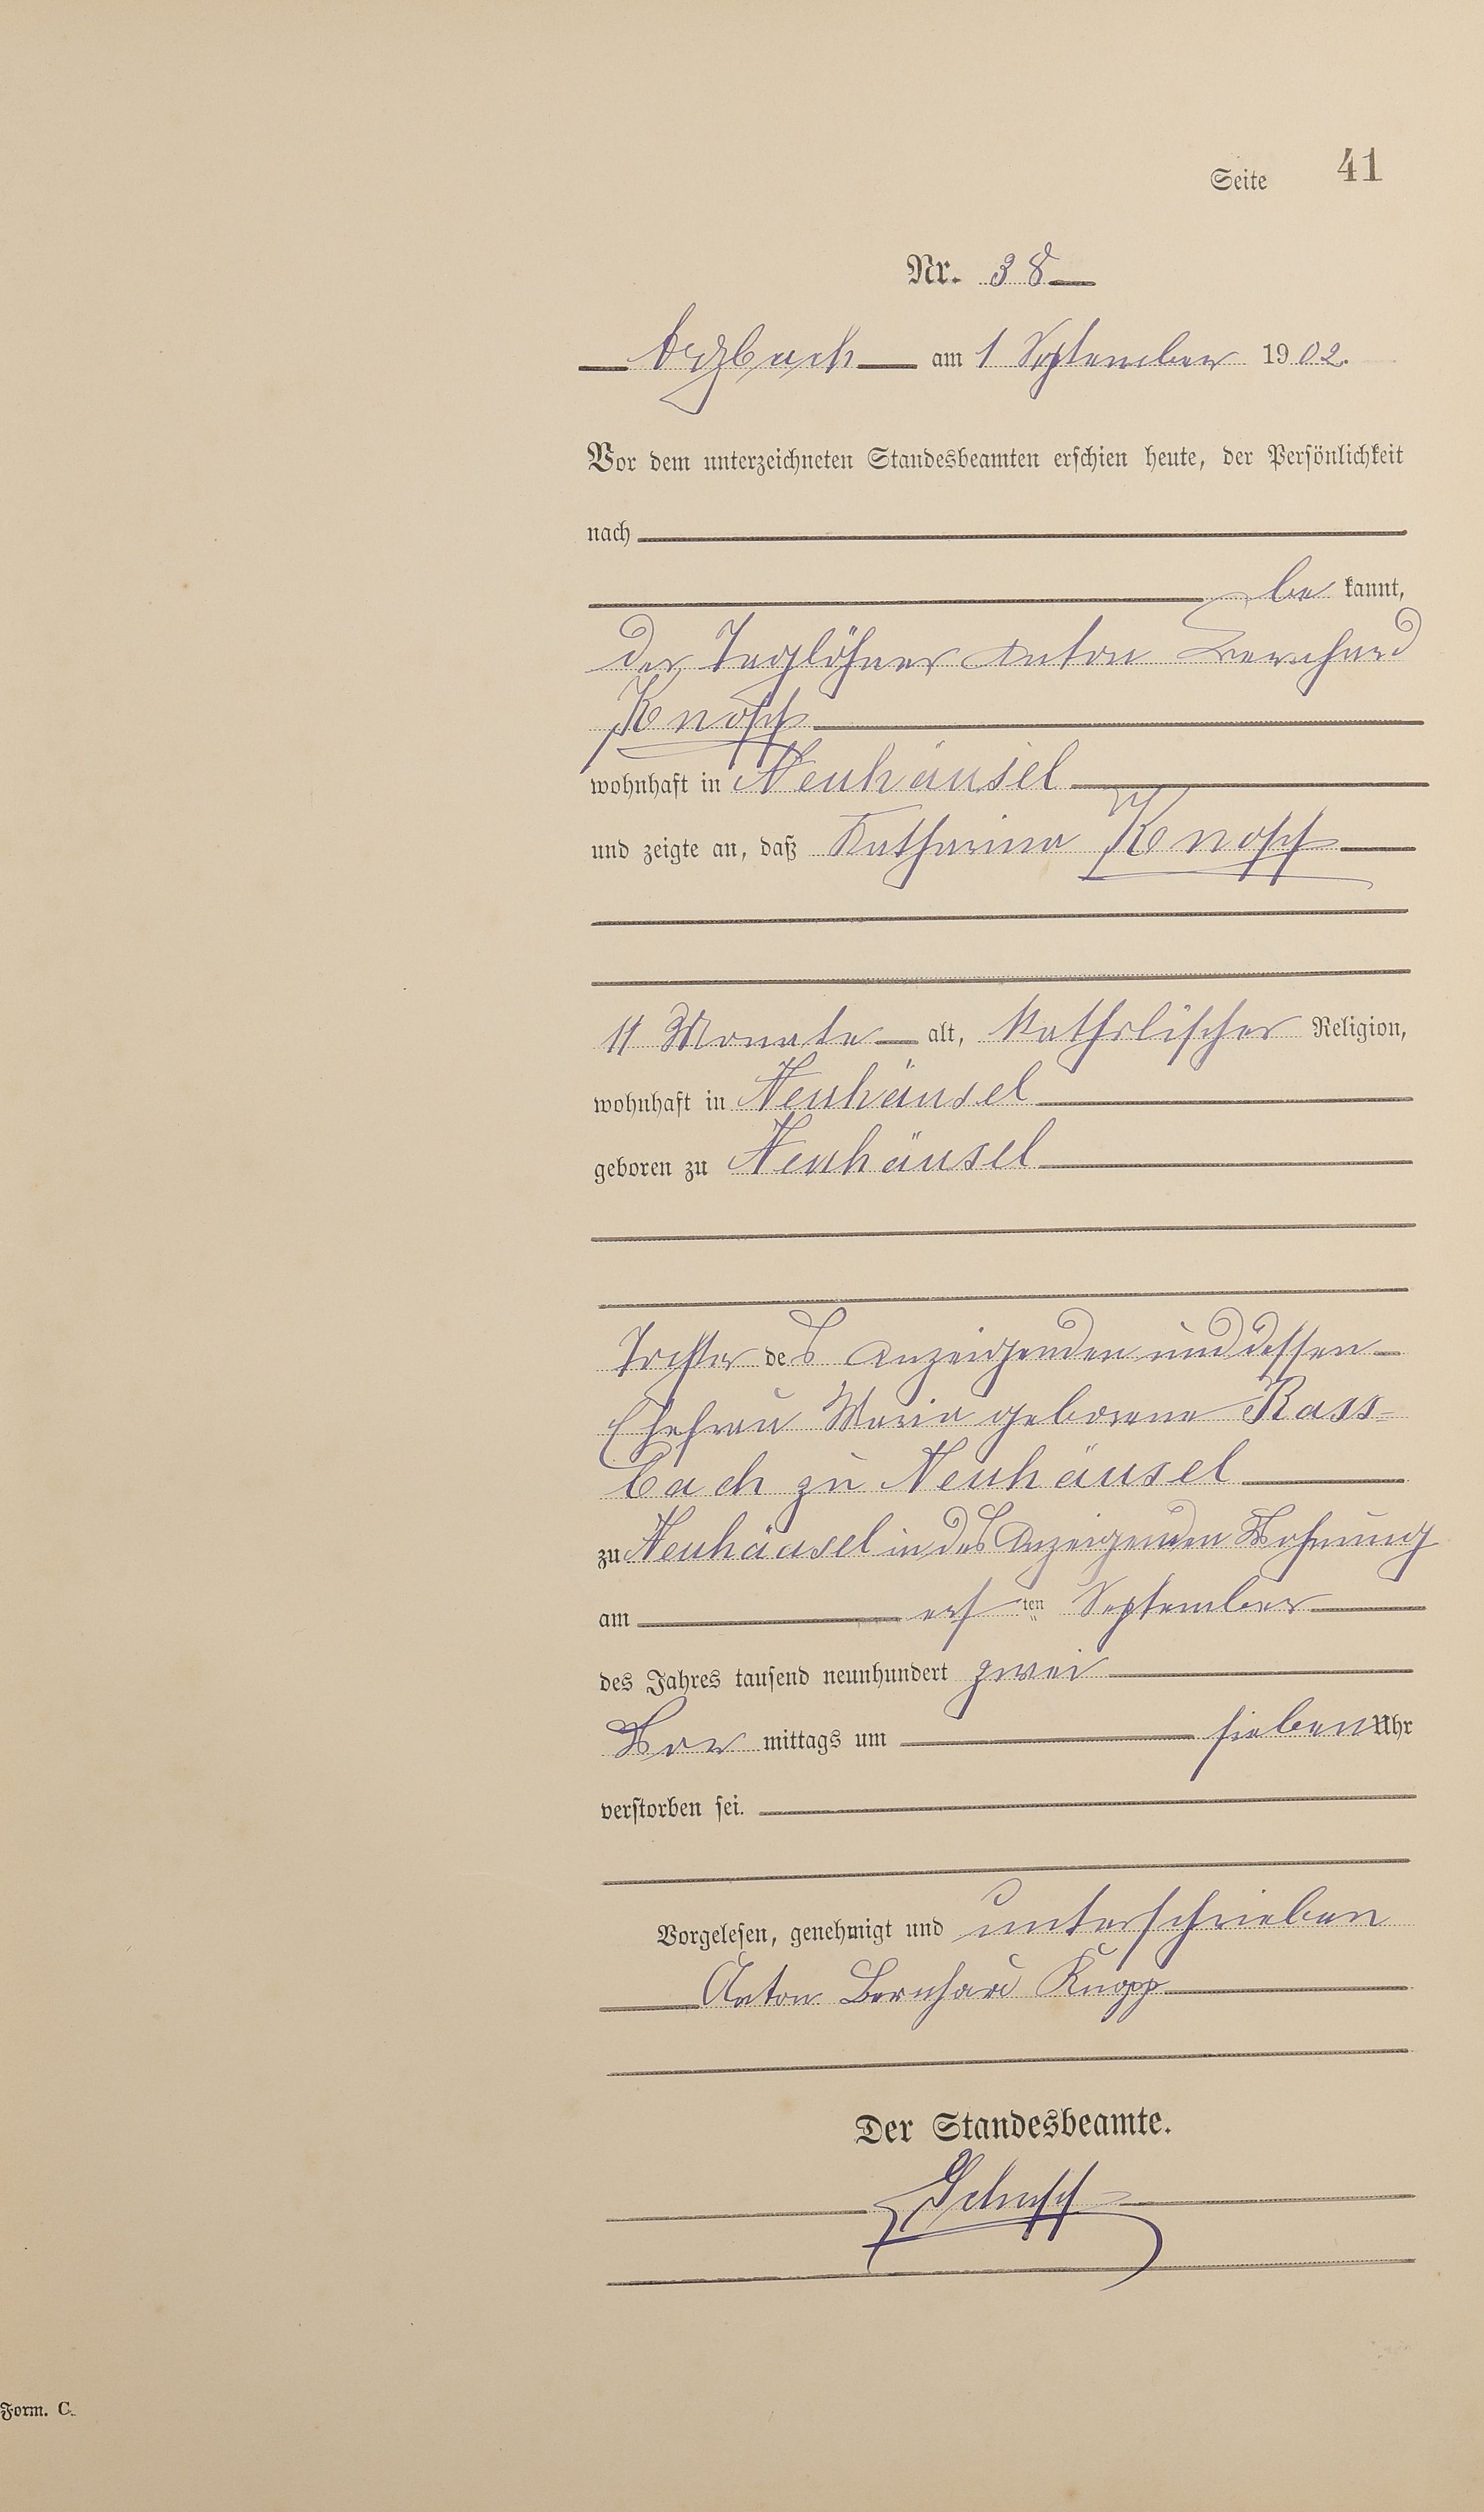 Seite 41
Nr. 38
Arzbach am 1 September 1902.
Vor dem unterzeichneten Standesbeamten erschien heute, der Persönlichkeit
nach
be kannt,
der Taglöhner Anton Bernhard
Knopp
wohnhaft in Neuhäusel
und zeigte an, daß Katharina Knopp
11 Monate alt, katholischer Religion,
wohnhaft in Neuhäusel
geboren zu Neuhäusel
Tochter des Anzeigenden und dessen
Ehefrau Maria geborene Rass-
bach zu Neuhäusel
zu Neuhäusel in des Anzeigenden Wohnung
am ersten September
des Jahres tausend neunhundert zwei
Vor mittags um sieben Uhr
verstorben sei.
Vorgelesen, genehmigt und unterschrieben
Anton Bernhard Knopp
Der Standesbeamte.
Form. C.